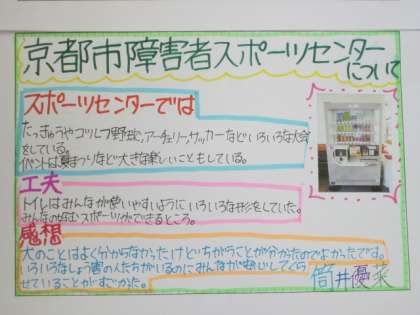 京都市障害者スポーツセンターについて
スポーツセンターでは
たっきゅうやゴルフ野球、アーチェリー、サッカーなどいろいろな大会
をしている。
イベントは夏まつりなど大きな楽しいこともしている。
工夫
トイレはみんなが使いやすいようにいろいろな形をしていた。
みんなが好むスポーツができるところ。
感想
大のことはよく分からなかったけどちがうことが分かったのでよかったです。
いろいろなしょう害の人たちがいるのにみんなが安心してくら
せていることがすごかった。
筒井優菜